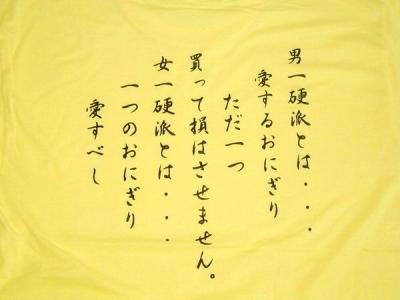 男一硬派とは・・・
愛するおにぎり
ただ一つ
買って損はさせません。
女一硬派とは・・・
一つのおにぎり
愛すべし